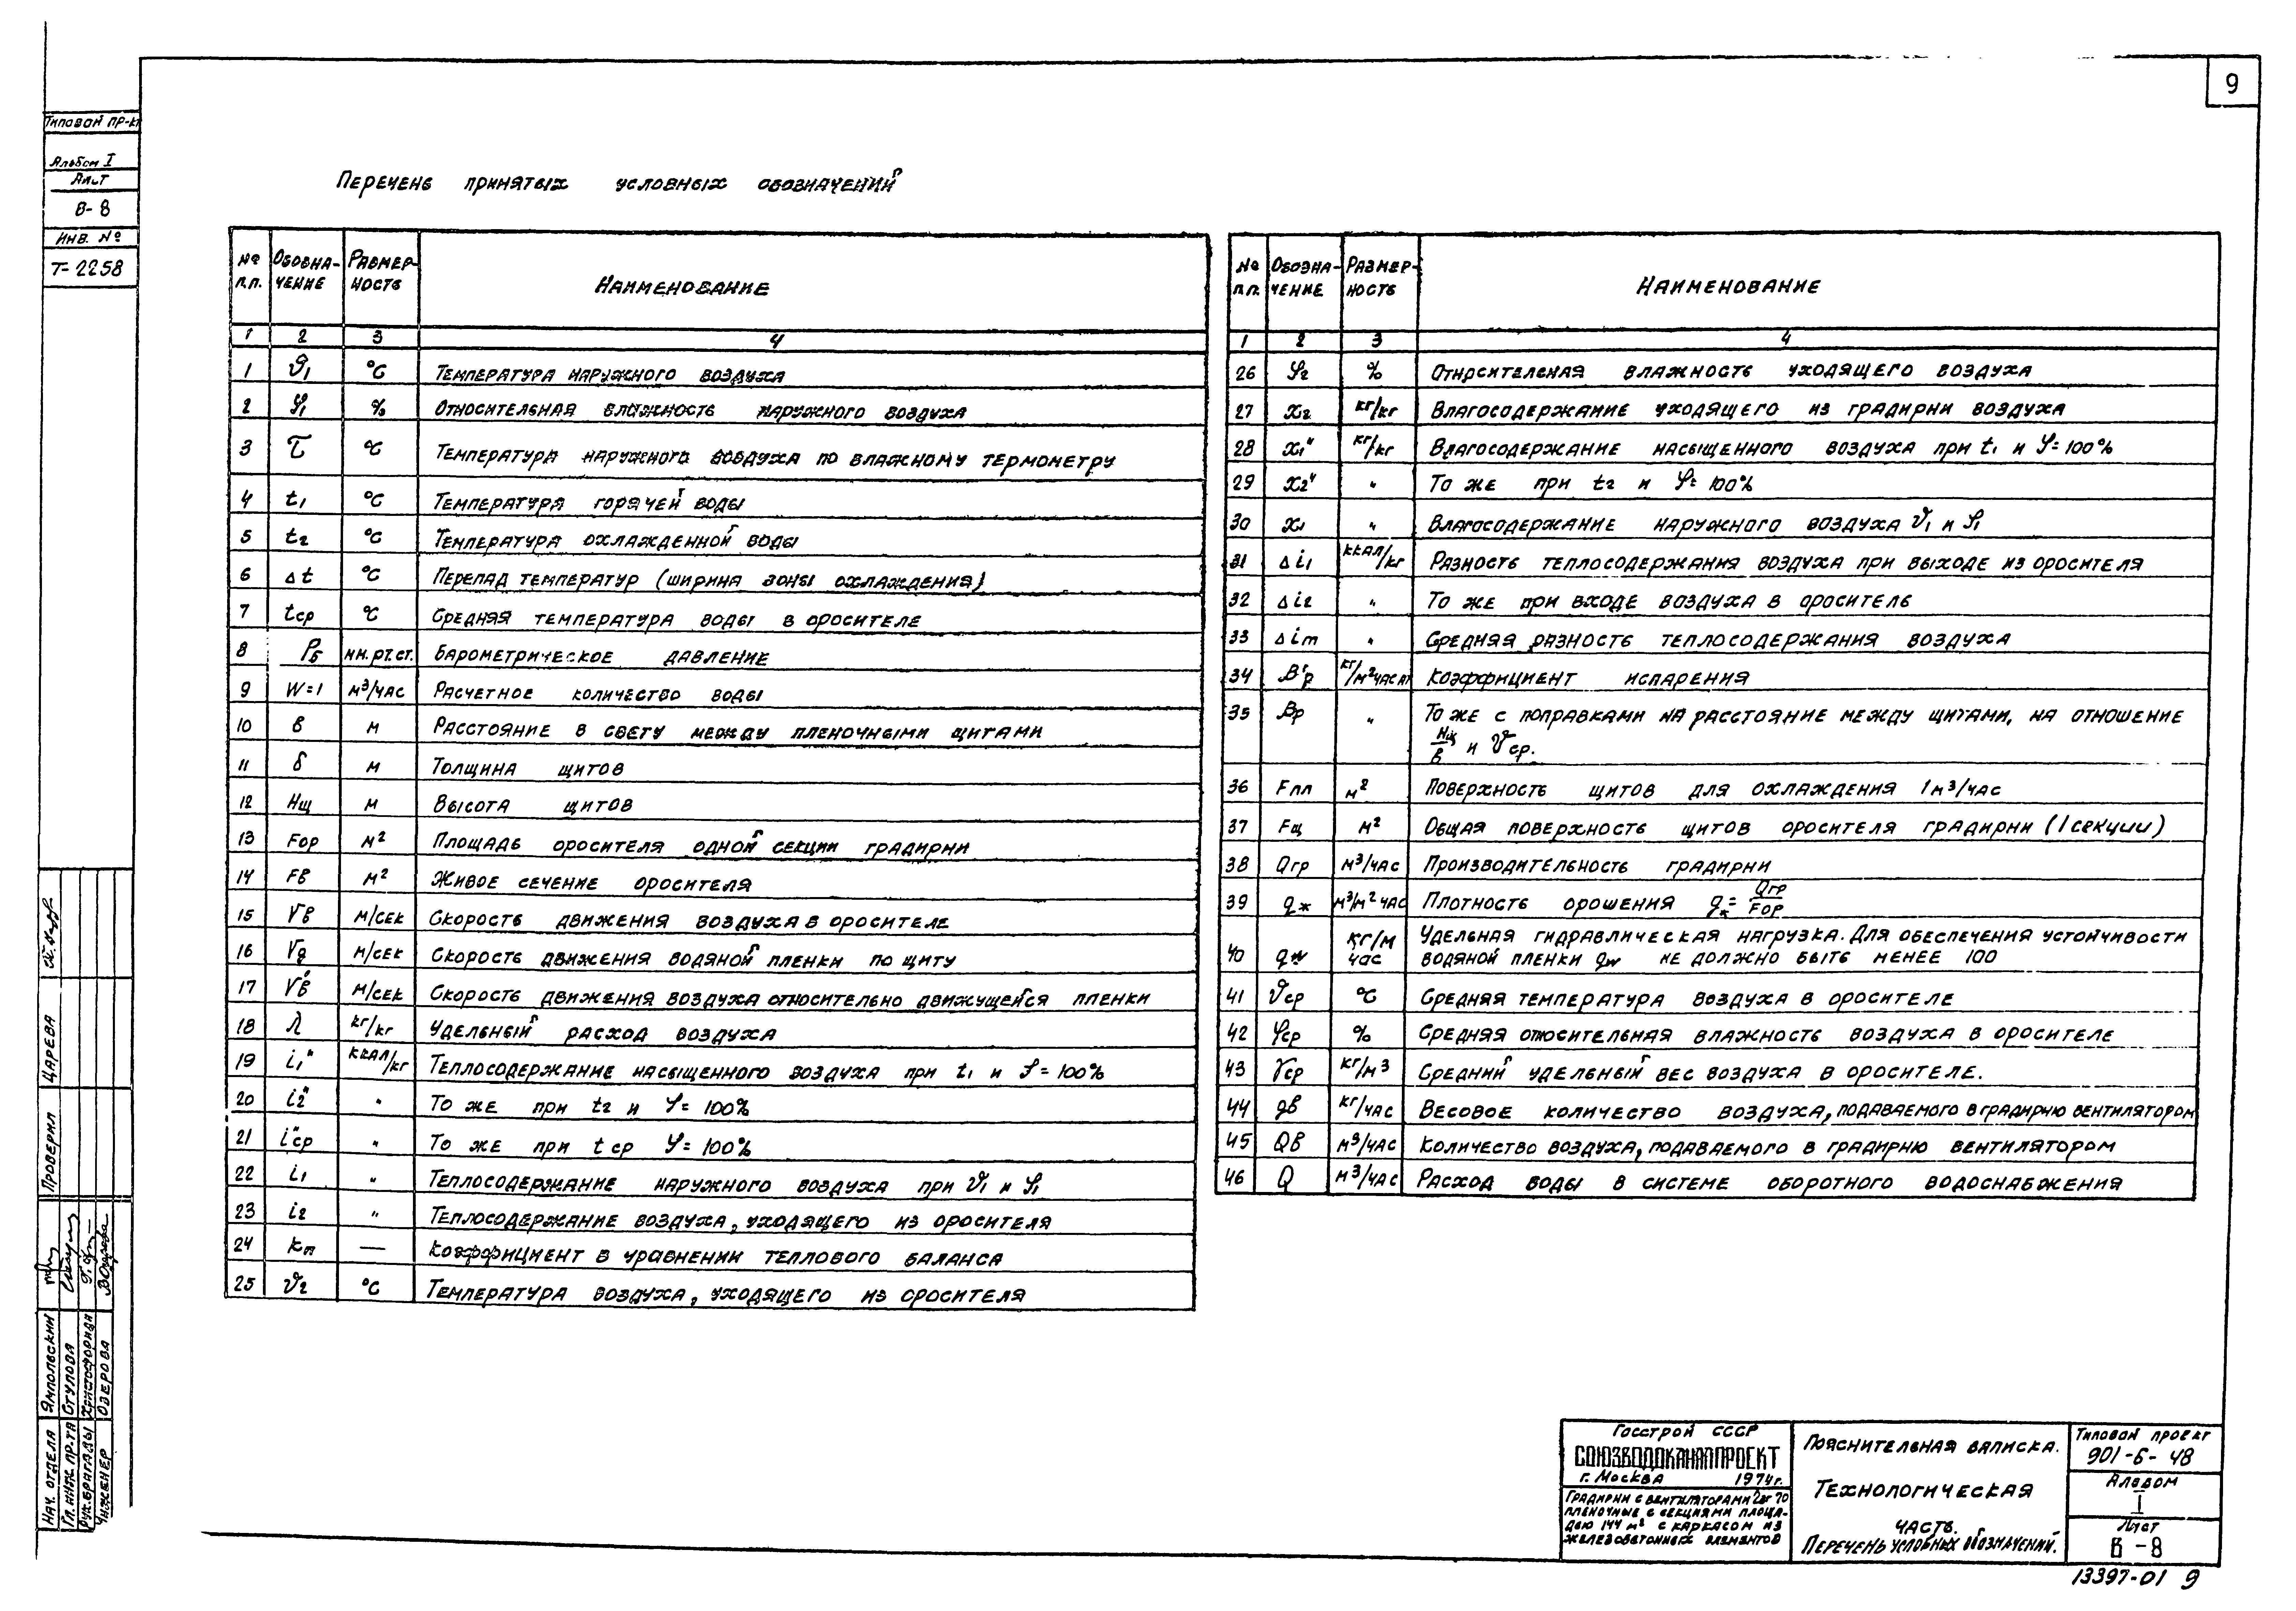 9
Типовой пр-кт
Альбом I
Лист
В-8
Инв. №
Т-2258
Перечень принятых условных обозначений
№ п.п. Обозначение Размерность Наименование
1 2 3 4
1 ϑ₁ °С Температура наружного воздуха
2 φ₁ % Относительная влажность наружного воздуха
3 τ °С Температура наружного воздуха по влажному термометру
4 t₁ °С Температура горячей воды
5 t₂ °С Температура охлажденной воды
6 Δt °С Перепад температур (ширина зоны охлаждения)
7 tср °С Средняя температура воды в оросителе
8 Рб мм.рт.ст. Барометрическое давление
9 W=1 м³/час Расчетное количество воды
10 в м Расстояние в свету между пленочными щитами
11 δ м Толщина щитов
12 Нщ м Высота щитов
13 Fор м² Площадь оросителя одной секции градирни
14 Fв м² Живое сечение оросителя
15 Vв м/сек Скорость движения воздуха в оросителе
16 Vд м/сек Скорость движения водяной пленки по щиту
17 V'в м/сек Скорость движения воздуха относительно движущейся пленки
18 λ кг/кг Удельный расход воздуха
19 i₁" ккал/кг Теплосодержание насыщенного воздуха при t₁ и φ=100%
20 i₂" " То же при t₂ и φ=100%
21 i"ср " То же при tср φ=100%
22 i₁ " Теплосодержание наружного воздуха при ϑ₁ и φ₁
23 i₂ " Теплосодержание воздуха, уходящего из оросителя
24 Кп — Коэффициент в уравнении теплового баланса
25 ϑ₂ °С Температура воздуха, уходящего из оросителя
№ п.п. Обозначение Размерность Наименование
1 2 3 4
26 φ₂ % Относительная влажность уходящего воздуха
27 x₂ кг/кг Влагосодержание уходящего из градирни воздуха
28 x₁" кг/кг Влагосодержание насыщенного воздуха при t₁ и φ=100%
29 x₂" " То же при t₂ и φ=100%
30 x₁ " Влагосодержание наружного воздуха ϑ₁ и φ₁
31 Δi₁ ккал/кг Разность теплосодержания воздуха при выходе из оросителя
32 Δi₂ " То же при входе воздуха в ороситель
33 Δim " Средняя разность теплосодержания воздуха
34 В'р кг/м²час ат Коэффициент испарения
35 Вр " То же с поправками на расстояние между щитами, на отношение
Нщ/в и ϑср.
36 Fпл м² Поверхность щитов для охлаждения 1м³/час
37 Fщ м² Общая поверхность щитов оросителя градирни (1 секции)
38 Qгр м³/час Производительность градирни
39 qж м³/м²час Плотность орошения qж = Qгр/Fор
40 qw кг/м час Удельная гидравлическая нагрузка. Для обеспечения устойчивости
водяной пленки qw не должно быть менее 100
41 ϑср °С Средняя температура воздуха в оросителе
42 φср % Средняя относительная влажность воздуха в оросителе
43 γср кг/м³ Средний удельный вес воздуха в оросителе.
44 gв кг/час Весовое количество воздуха, подаваемого в градирню вентилятором
45 Qв м³/час Количество воздуха, подаваемого в градирню вентилятором
46 Q м³/час Расход воды в системе оборотного водоснабжения
Проверил Царева
Нач. отдела Ямпольский
Гл. инж. пр-та Стулова
Рук. бригады
Инженер Озерова
Госстрой СССР
СОЮЗВОДОКАНАЛПРОЕКТ
г. Москва 1974г.
Градирни с вентиляторами 2ВГ 70
пленочные с секциями площа-
дью 144 м² с каркасом из
железобетонных элементов
Пояснительная записка.
Технологическая
часть.
Перечень условных обозначений.
Типовой проект
901-6-48
Альбом
I
Лист
В-8
13397-01 9